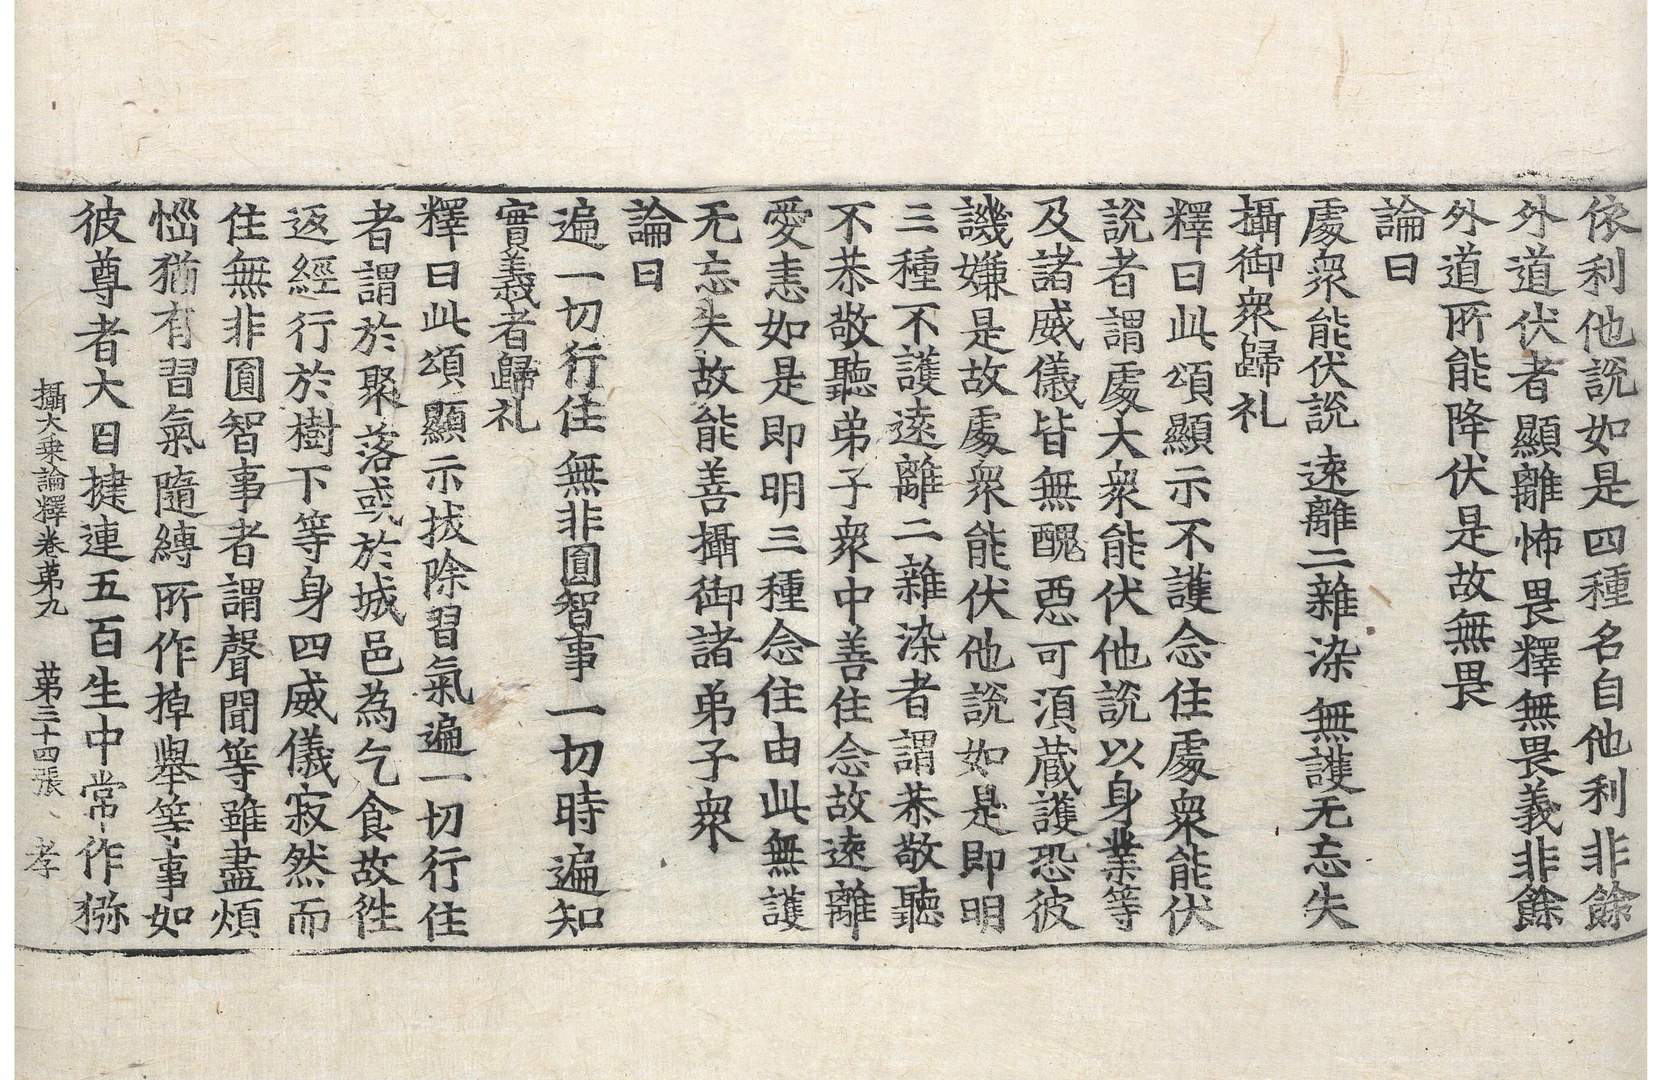 依利他說如是四種名自他利非餘
外道伏者顯離怖畏釋無畏義非餘
外道所能降伏是故無畏
論曰
處衆能伏說 遠離二雜染 無護无忘失
攝御衆歸礼
釋曰此頌顯示不護念住處衆能伏
說者謂處大衆能伏他說以身業等
及諸威儀皆無醜惡可須藏護恐彼
譏嫌是故處衆能伏他說如是即明
三種不護遠離二雜染者謂恭敬聽
不恭敬聽弟子衆中善住念故遠離
愛恚如是即明三種念住由此無護
无忘失故能善攝御諸弟子衆
論曰
遍一切行住 無非圓智事 一切時遍知
實義者歸礼
釋曰此頌顯示拔除習氣遍一切行住
者謂於聚落或於城邑為乞食故徃
返經行於樹下等身四威儀寂然而
住無非圓智事者謂聲聞等雖盡煩
惱猶有習氣隨縛所作掉舉等事如
彼尊者大目揵連五百生中常作猕
攝大乗論釋卷第九 第三十四張 孝